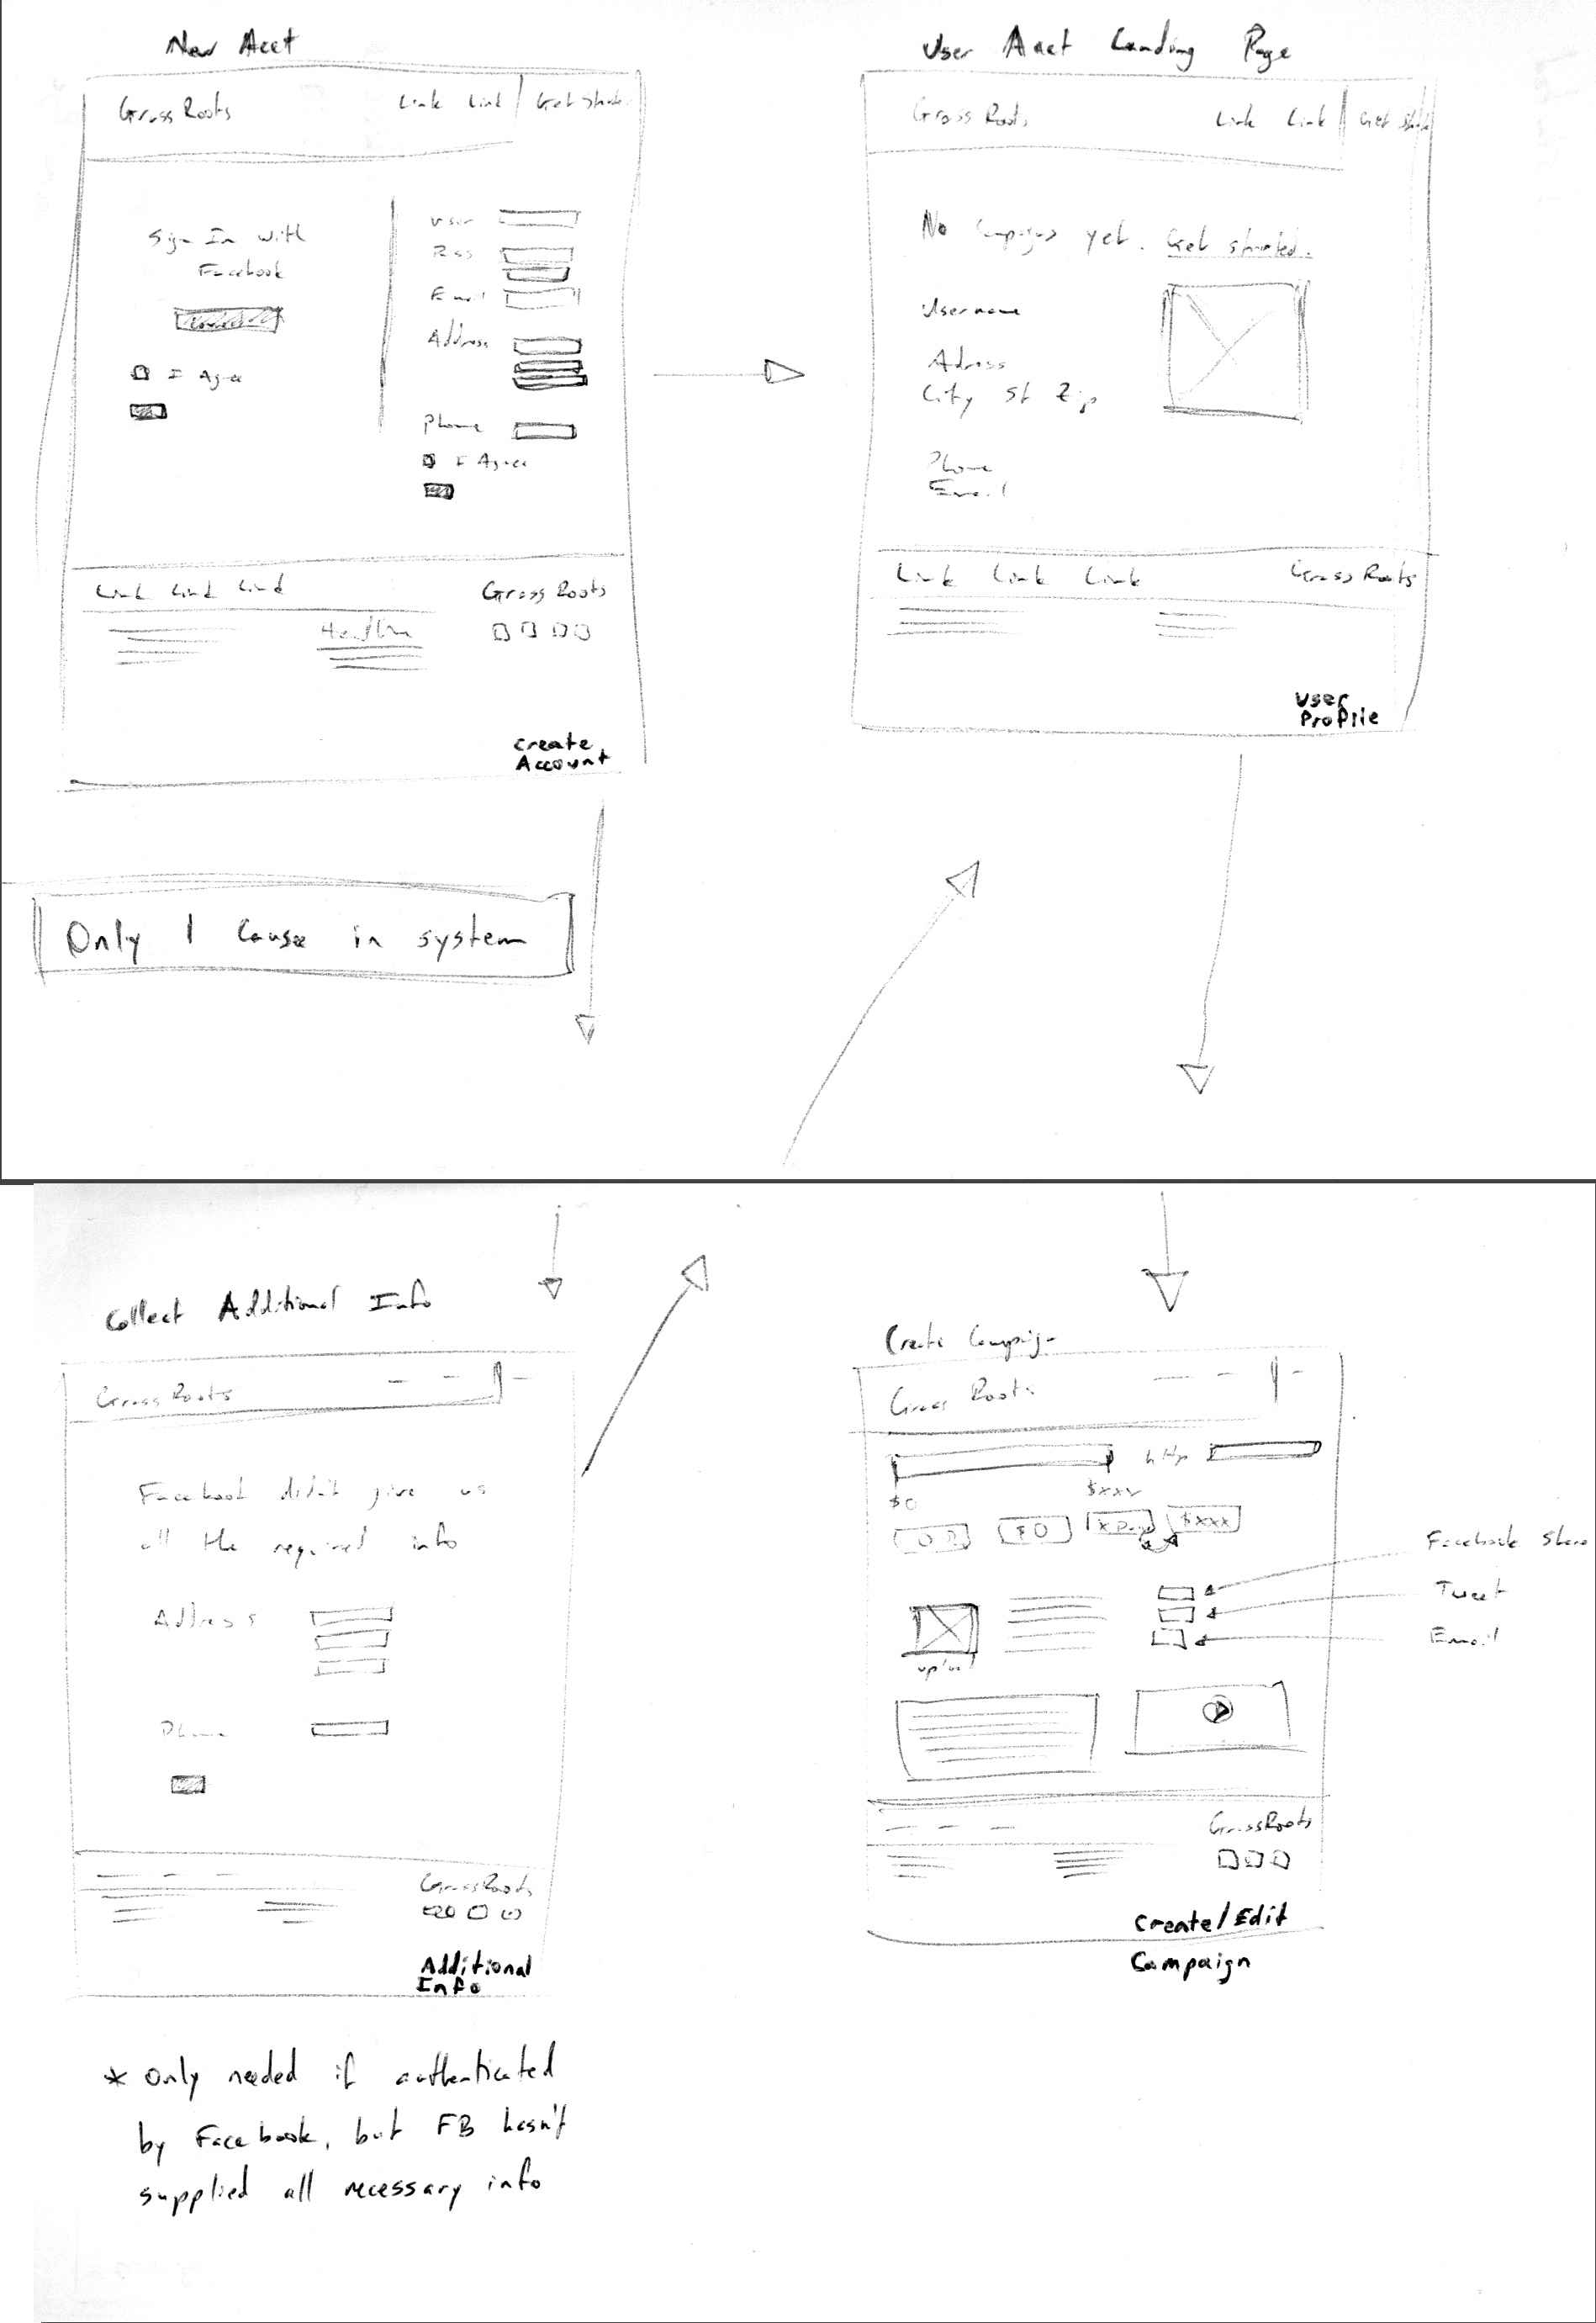 New Acct
Grass Roots
Link Link
Get Started
Sign In with
Facebook
I Agree
User
Pass
Email
Address
Phone
I Agree
Link Link Link
Grass Roots
Headline
Create
Account
User Acct Landing Page
Grass Roots
Link Link
Get Started
No Campaigns yet. Get started.
Username
Adress
City St Zip
Phone
Email
Link Link Link
Grass Roots
User
Profile
Only 1 Cause in system
Collect Additional Info
Grass Roots
Facebook didn't give us
all the required info
Address
Phone
GrassRoots
Additional
Info
* Only needed if authenticated
by Facebook, but FB hasn't
supplied all necessary info
Create Campaign
Grass Roots
http
$0
$xxx
$0
$xxx
upload
Facebook Share
Tweet
Email
GrassRoots
Create/Edit
Campaign